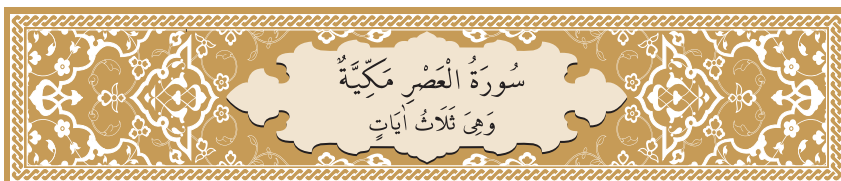 سُورَةُ الْعَصْرِ مَكِّيَّةٌ
وَهِىَ ثَلَاثُ اٰيَاتٍ